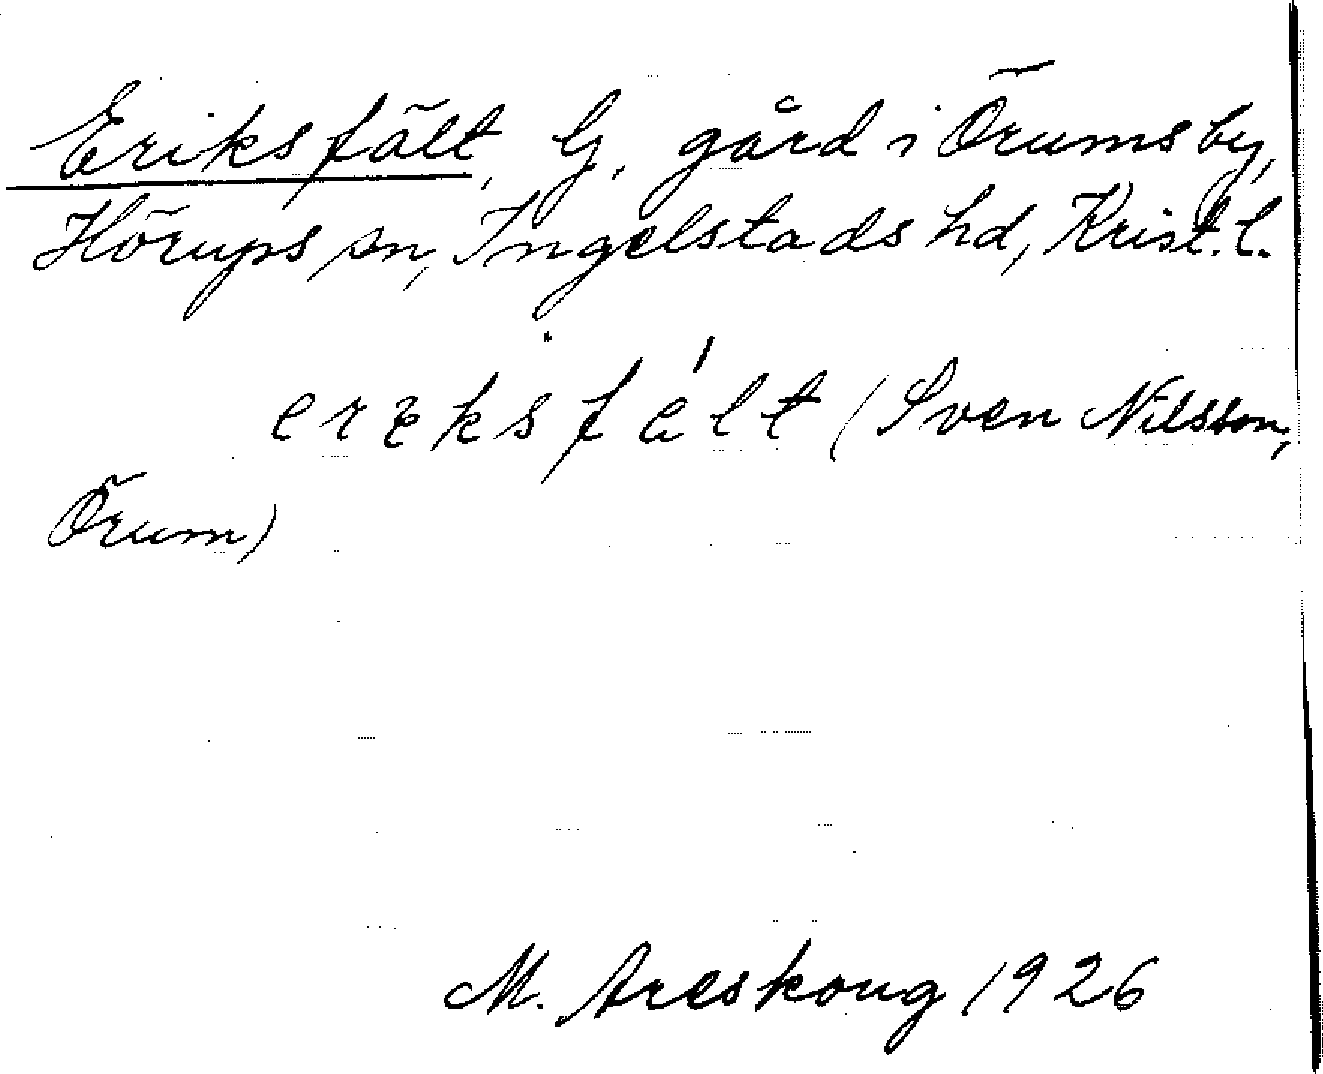 Eriksfält, G, gård i Örums by,
Hörups sn, Ingelstads hd, Krist. l.
(Sven Nilsson,
Örum)
M. Areskoug 1926